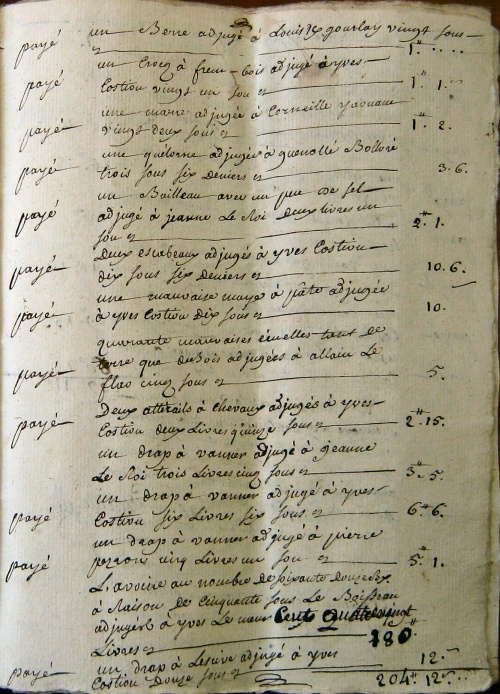 payé un Berre adjugé à Louis Le gourlay vingt sous 1#
payé un Crocq à freu-bois adjugé à yves
Costiou vingt un sou 1# 1.
payé une mane adjugée à Corneille
vingt deux sous 1# 2.
payé une quélorne adjugée à guenollé Bolloré
trois sous six deniers 3. 6.
un Bailleau avec un peu de sel
payé adjugé à jeanne Le Roi deux livres un
sou 2# 1.
Deux escabeaux adjugés à yves Costiou
payé dix sous six deniers 10. 6.
une mauvaise maye à pâte adjugée
payé à yves Costiou dix sous 10.
quarante mauvaises écuelles tant de
terre que de Bois adjugées à allain Le
payé flao cinq sous 5.
Deux attirails à chevaux adjugés à yves
payé Costiou deux Livres quinze sous 2# 15.
un drap à vanner adjugé à jeanne
Le Roi trois Livres cinq sous 3# 5.
un drap à vanner adjugé à yves
payé Costiou six Livres six sous 6# 6.
un drap à vanner adjugé à pierre
payé cinq Livres un sou 5# 1.
L'avoine au nombre de soixante douze
à Raison de Cinquante sous Le Boisseau
adjugée à yves Le Cents Quatrevingt
Livres 180#
un drap à Lesive adjugé à yves
payé Costiou Douze sous 12.
204# 12